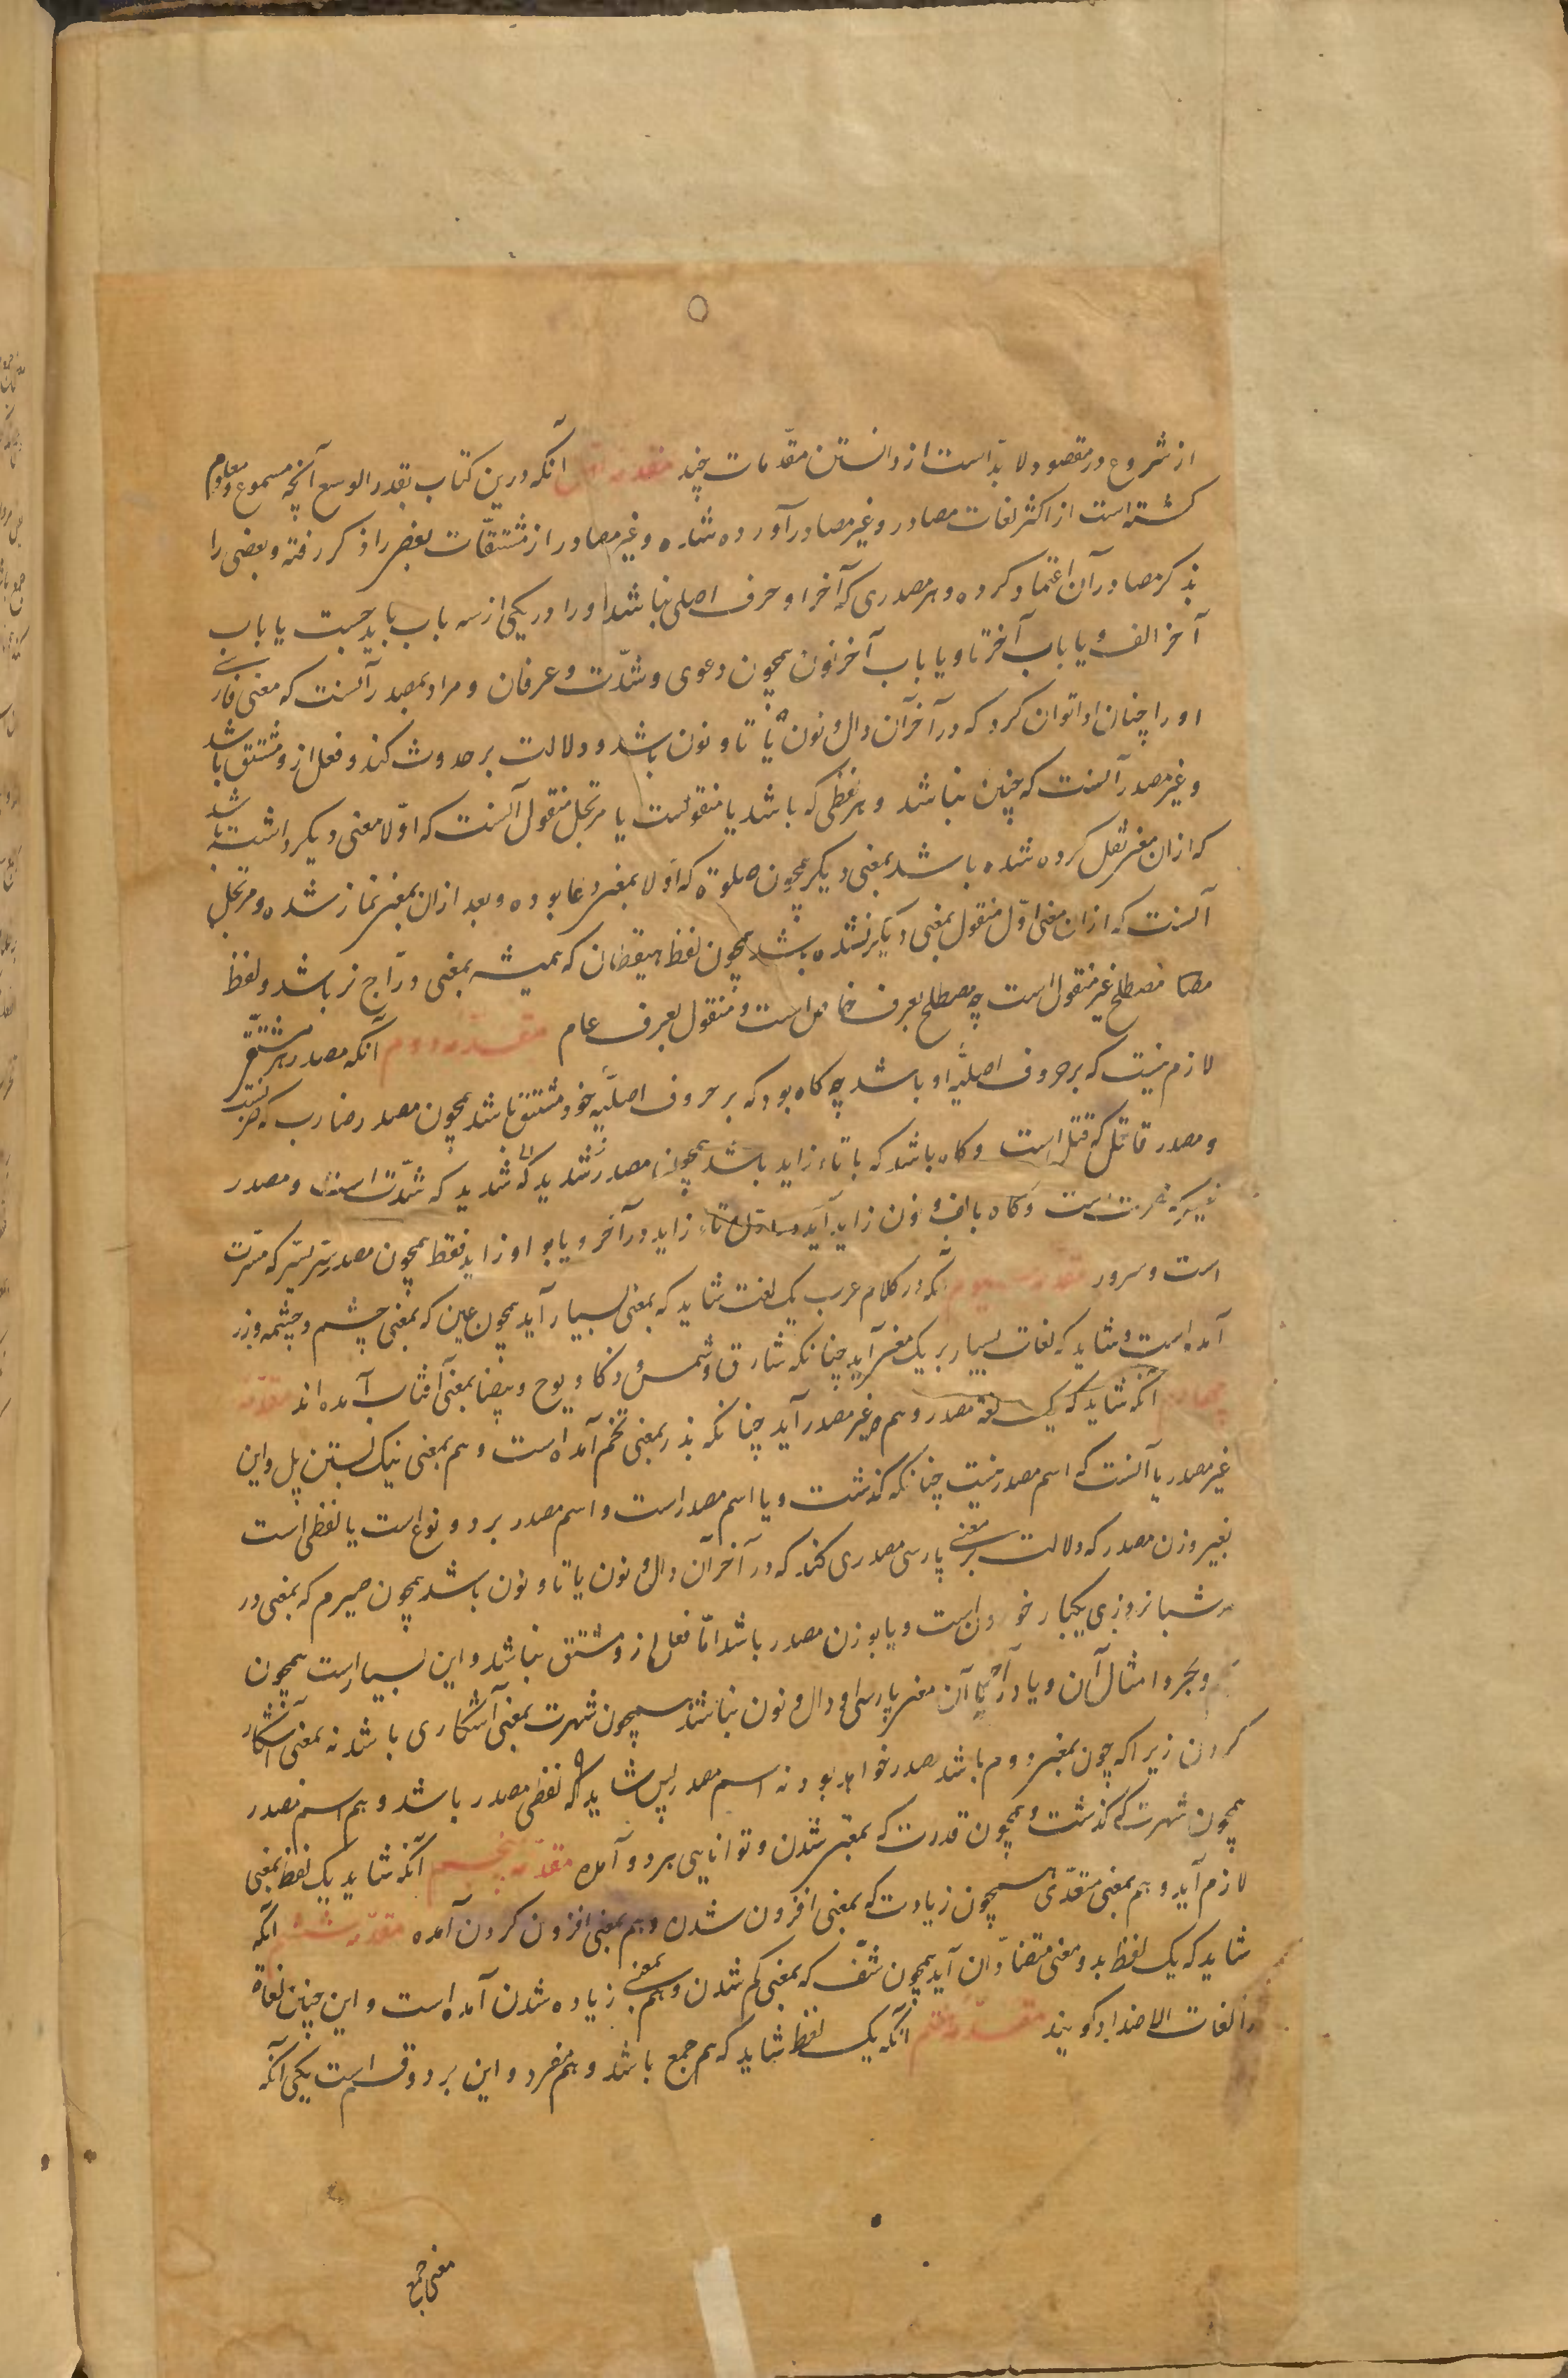 از شروع در مقصود لا بدّ است از دانستن مقدّمات چند مقدّمه اوّل آنکه درین کتاب بقدر الوسع آنچه مسموع و معلوم
کشته است از اکثر لغات مصادر و غیر مصادر آورده شده و غیر مصادر از مشتقّات بعضی را ذکر رفته و بعضی را
بذکر مصادر آن اعتماد کرده و هر مصدری که آخر او حرف اصلی نباشد او را در یکی از سه باب باید جست یا باب
آخر الف و یا باب آخر تا و یا باب آخر نون همچون دعوی و شدّت و عرفان و مراد بمصدر آنست که معنی فارسی
او را چنان ادا توان کرد که در آخر آن دال و نون یا تا و نون باشد و دلالت بر حدوث کند و فعل ازو مشتق باشد
و غیر مصدر آنست که چنین نباشد و هر لفظی که باشد یا منقولست یا مرتجل منقول آنست که اوّلا معنی دیکر داشته باشد
که ازان معنی نقل کرده شده باشد بمعنی دیکر همچون صلوة که اولا بمعنی دعا بوده و بعد ازان بمعنی نماز شده و مرتجل
آنست که ازان معنی اوّل منقول بمعنی دیکر نشده باشد همچون لفظ حیقطان که همیشه بمعنی درّاج نر باشد و لفظ
مصطلح غیر منقول است چه مصطلح بعرف خاص است و منقول بعرف عام مقدّمه دوم آنکه مصدر هر مشتق
لازم نیست که بر حروف اصلیّه او باشد چه کاه بود که بر حروف اصلیّه خود مشتق باشد همچون مصدر ضارب که ضربست
و مصدر قاتل که قتل است و کاه باشد که با تاء زاید باشد همچون مصدر شدید که شدّت است و مصدر
است و کاه با الف و نون زاید آید و تاء زاید در آخر و یا بواو زاید فقط همچون مصدر که مسرّت
است و سرور مقدّمه سیوم آنکه در کلام عرب یک لغت شاید که بمعنی بسیار آید همچون عین که بمعنی چشم و چشمه و زر
آمده است و شاید که لغات بسیار بر یک معنی آید چنانکه شارق و شمس و ذکا و یوح و بیضا بمعنی آفتاب آمده اند مقدّمه
چهارم آنکه شاید که یک لغة مصدر و هم غیر مصدر آید چنانکه بذر بمعنی تخم آمده است و هم بمعنی این
غیر مصدر یا آنست که اسم مصدر نیست چنانکه کذشت و یا اسم مصدر است و اسم مصدر بر دو نوع است یا لفظی است
بغیر وزن مصدر که دلالت بر معنی پارسی مصدری کند که در آخر آن دال و نون یا تا و نون باشد همچون صیرم که بمعنی در
شبانروزی یکبار خوردن است و یا بوزن مصدر باشد امّا فعل ازو مشتق نباشد و این بسیار است همچون
و امثال آن و یا در آخر آن معنی پارسی او دال و نون نباشد همچون شهرت بمعنی آشکاری باشد نه بمعنی آشکار
کردن زیرا که چون بمعنی دوم باشد مصدر خواهد بود نه اسم مصدر پس شاید که لفظی مصدر باشد و هم اسم مصدر
همچون شهرت که کذشت و همچون قدرت که بمعنی شدن و توانایی هر دو آمده مقدّمه پنجم آنکه شاید یک لفظ بمعنی
لازم آید و هم بمعنی متعدّی همچون زیادت که بمعنی افزون شدن و هم بمعنی افزون کردن آمده مقدّمه ششم آنکه
شاید که یک لفظ بدو معنی متضادّان آید همچون شفّ که بمعنی کم شدن و هم بمعنی زیاده شدن آمده است و این چنین لغات
را لغات الاضداد کویند مقدّمه هفتم آنکه یک لفظ شاید که هم جمع باشد و هم مفرد و این بر دو قسم است یکی آنکه
معنی جمع